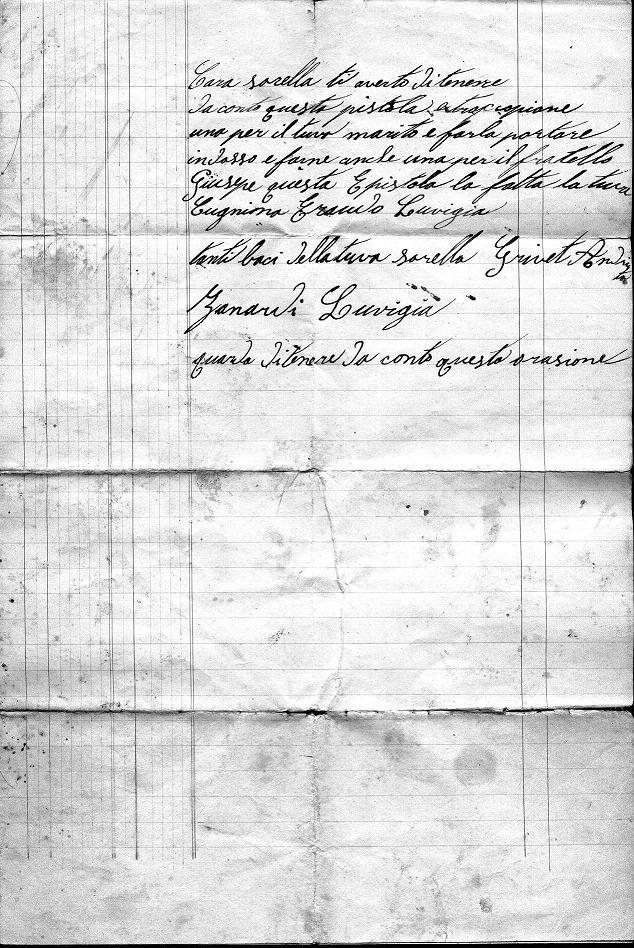 Cara sorella ti averto ditenere
da conto questa pistola copione
una per il tuvo marito e farla portare
indosso e farne anche una per il fratello
Giusepe questa Epistola la fatta la tuva
Cugniona Luvigia
tanti baci dellatuva sorella Grivet
Zanardi Luvigia
quarda ditenere da conto questa orasione